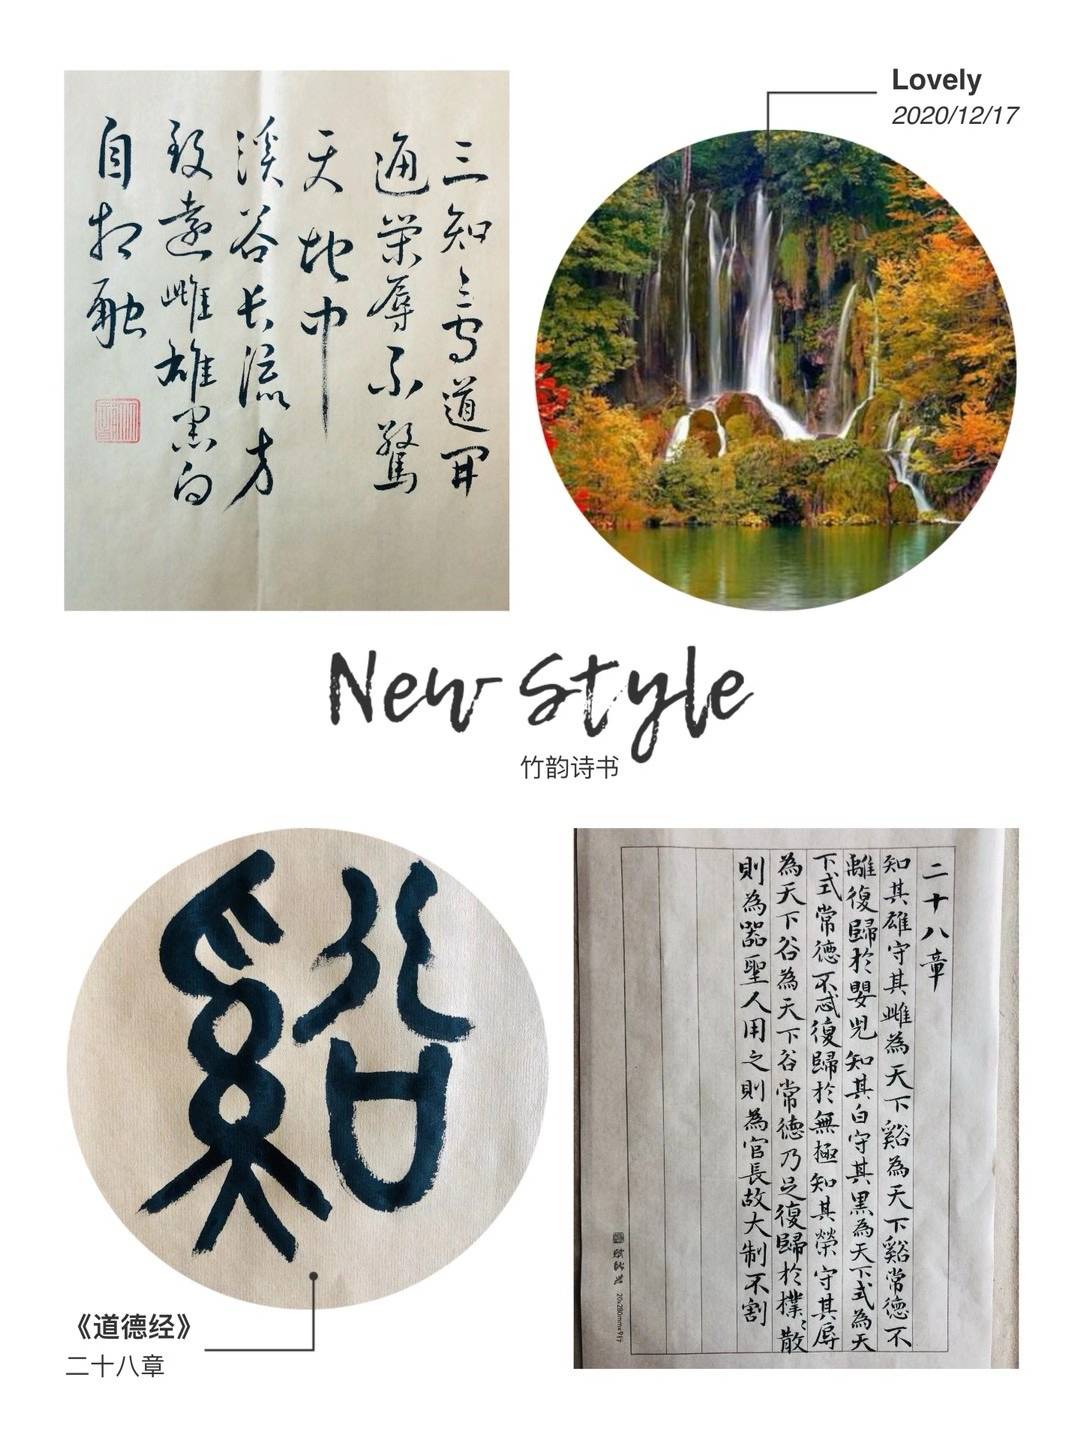 三知三守道開
通榮辱不驚
天地中
溪谷長流方
致遠雌雄黑白
自相融
Lovely
2020/12/17
New Style
竹韵诗书
谿
《道德经》
二十八章
二十八章
知其雄守其雌為天下谿為天下谿常德不
離復歸於嬰兒知其白守其黑為天下式為天
下式常德不忒復歸於無極知其榮守其辱
為天下谷為天下谷常德乃足復歸於樸〻散
則為器聖人用之則為官長故大制不割